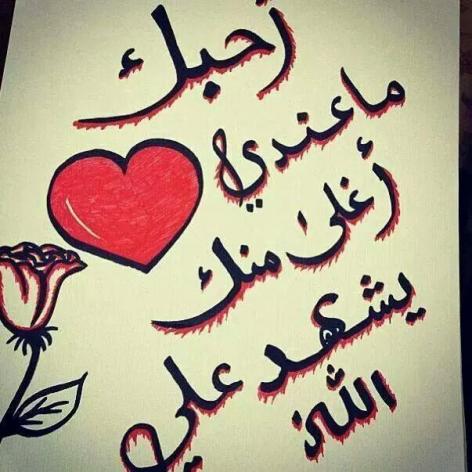 أحبك
ما عندي
أغلى منك
يشهد علي
الله